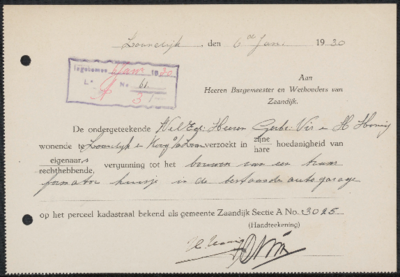 den 6 Jan 1930
Ingekomen Jan 1930
L. No. 61
Aan
Heeren Burgemeester en Wethouders van
Zaandijk.
De ondergeteekende Wel Ed. Heeren Gebr. Vis en H. Honig
wonende te en verzoekt in zijne hare hoedanigheid van
eigenaar, rechthebbende, vergunning tot het bouwen van een trans
formator huisje in de bestaande autogarage
op het perceel kadastraal bekend als gemeente Zaandijk Sectie A No. 3025
(Handteekening)